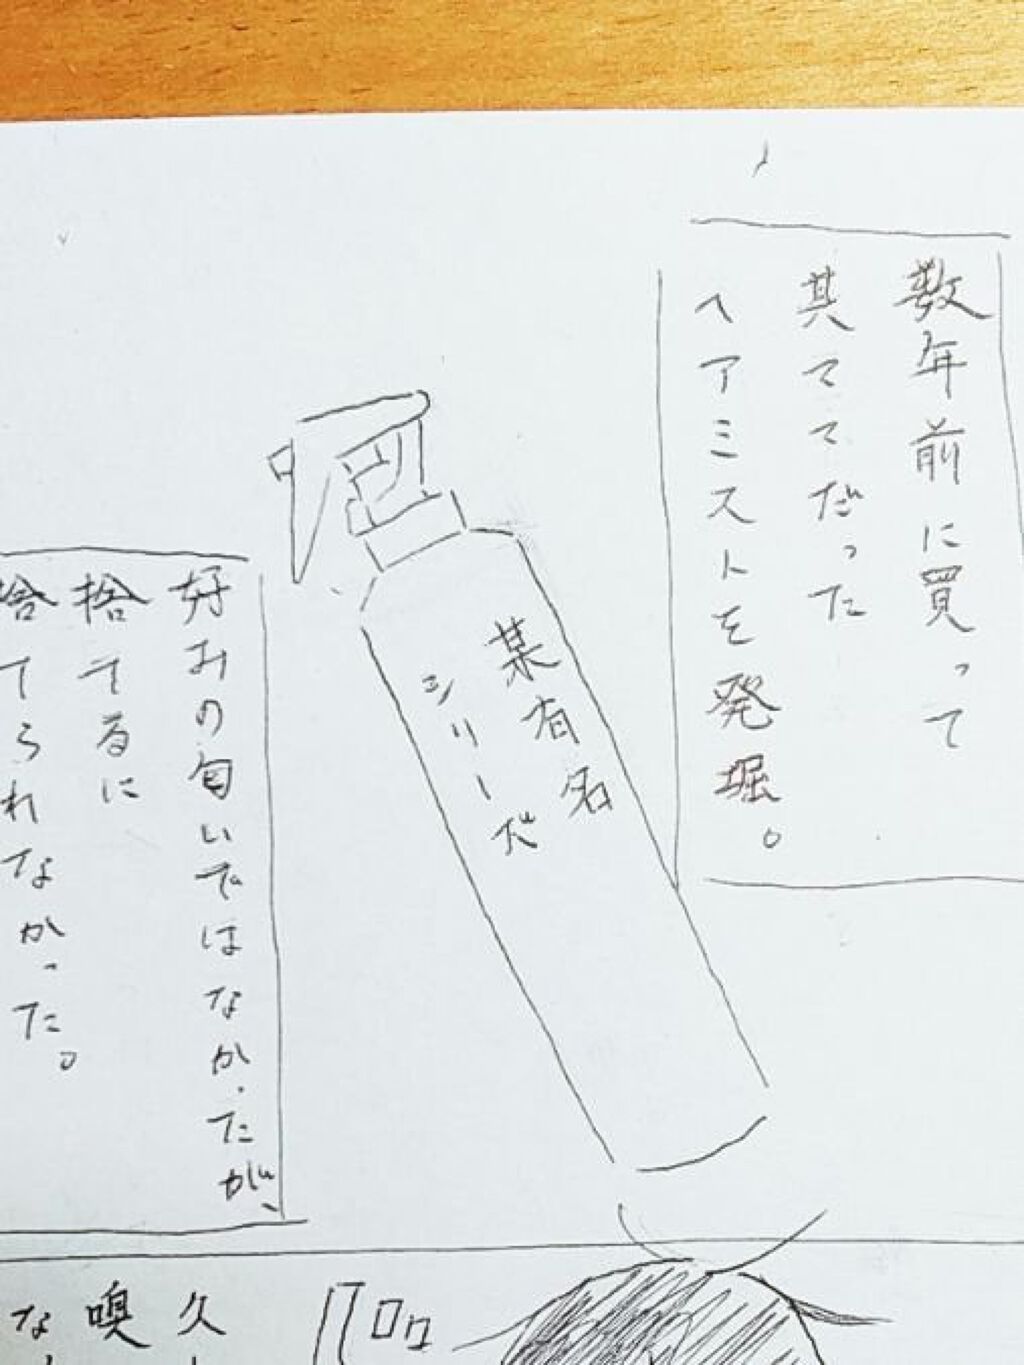 数年前に買って
其ててだった
ヘアミストを発掘。
某有名
シリーズ
好みの匂いではなかったが、
捨てるに
捨てられなかった。
久
嗅
な